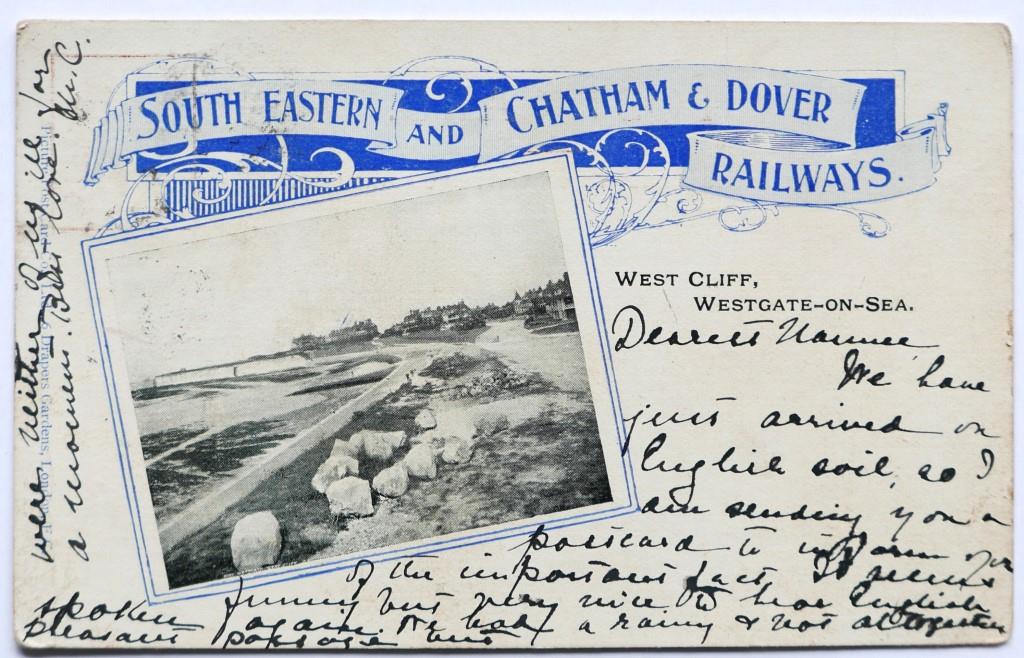 SOUTH EASTERN AND CHATHAM & DOVER
RAILWAYS.
WEST CLIFF,
WESTGATE-ON-SEA.
Dearest Nannie
We have
just arrived on
English soil, so I
am sending you a
postcard to inform you
of the important fact. It seems
funny but very nice to hear English
spoken again. We had a rainy & not altogether
pleasant passage but
were neither of us ill for
a moment. Best love
Pictorial Postcard Co. Ltd., Drapers Gardens, London, E.C.